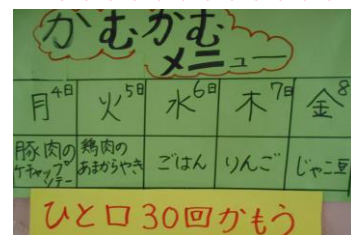 かむかむ
メニュー
月4日 火5日 水6日 木7日 金8
豚肉の
ケチャップ
ソテー
鶏肉の
あまからやき
ごはん
りんご
じゃこ豆
ひと口30回かもう